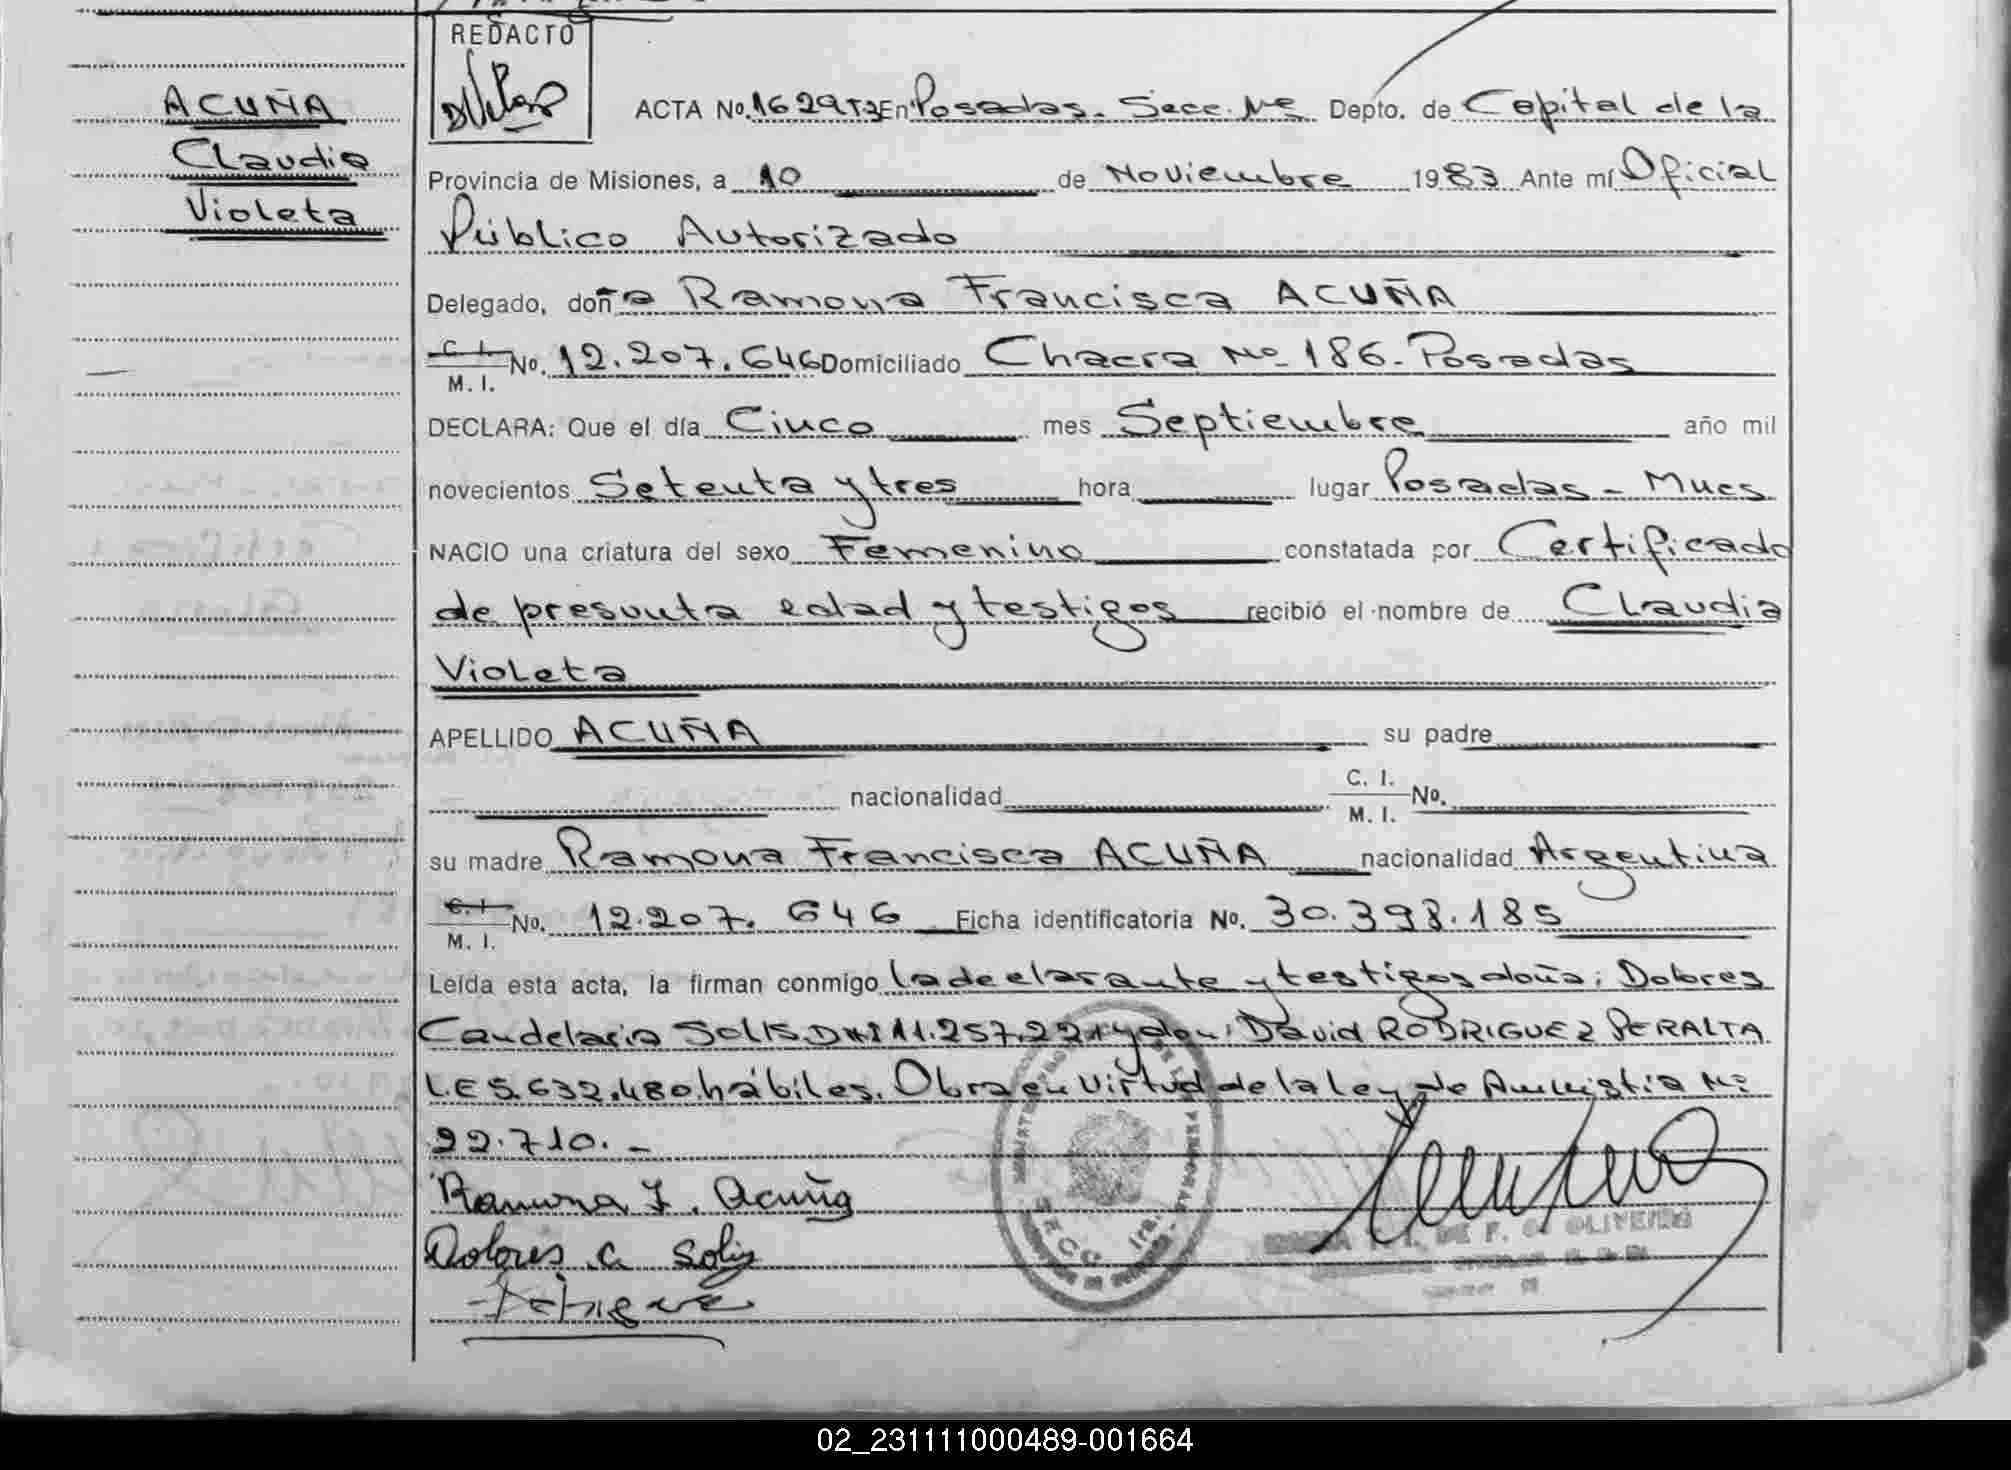 REDACTO
ACUÑA
Claudia
Violeta
ACTA No. 1629 T3 En Posadas. Secc. Depto. de Capital de la
Provincia de Misiones, a 10 de Noviembre 1983 Ante mí Oficial
Público Autorizado
Delegado, doña Ramona Francisca ACUÑA
C. I. M. I. No. 12.207.646 Domiciliado Chacra No 186 - Posadas
DECLARA: Que el día Cinco mes Septiembre año mil
novecientos Setenta y tres hora lugar Posadas - Mnes
NACIO una criatura del sexo Femenino constatada por Certificado
de presunta edad y testigos recibió el nombre de Claudia
Violeta
APELLIDO ACUÑA su padre
nacionalidad C. I. M. I. No.
su madre Ramona Francisca ACUÑA nacionalidad Argentina
C. I. M. I. No. 12.207.646 Ficha identificatoria No. 30.398.185
Leída esta acta, la firman conmigo la declarante y testigos doña: Dolores
Candelaria SOLIS DNI 11.257.221 y don: David RODRIGUEZ PERALTA
L.E 5.632.480 hábiles. Obra en virtud de la ley de Amnistia No
22.710. -
Ramona F. Acuña
Dolores C. Solis
SECC 1ra.
DE F. OLIVEIRA
02_231111000489-001664